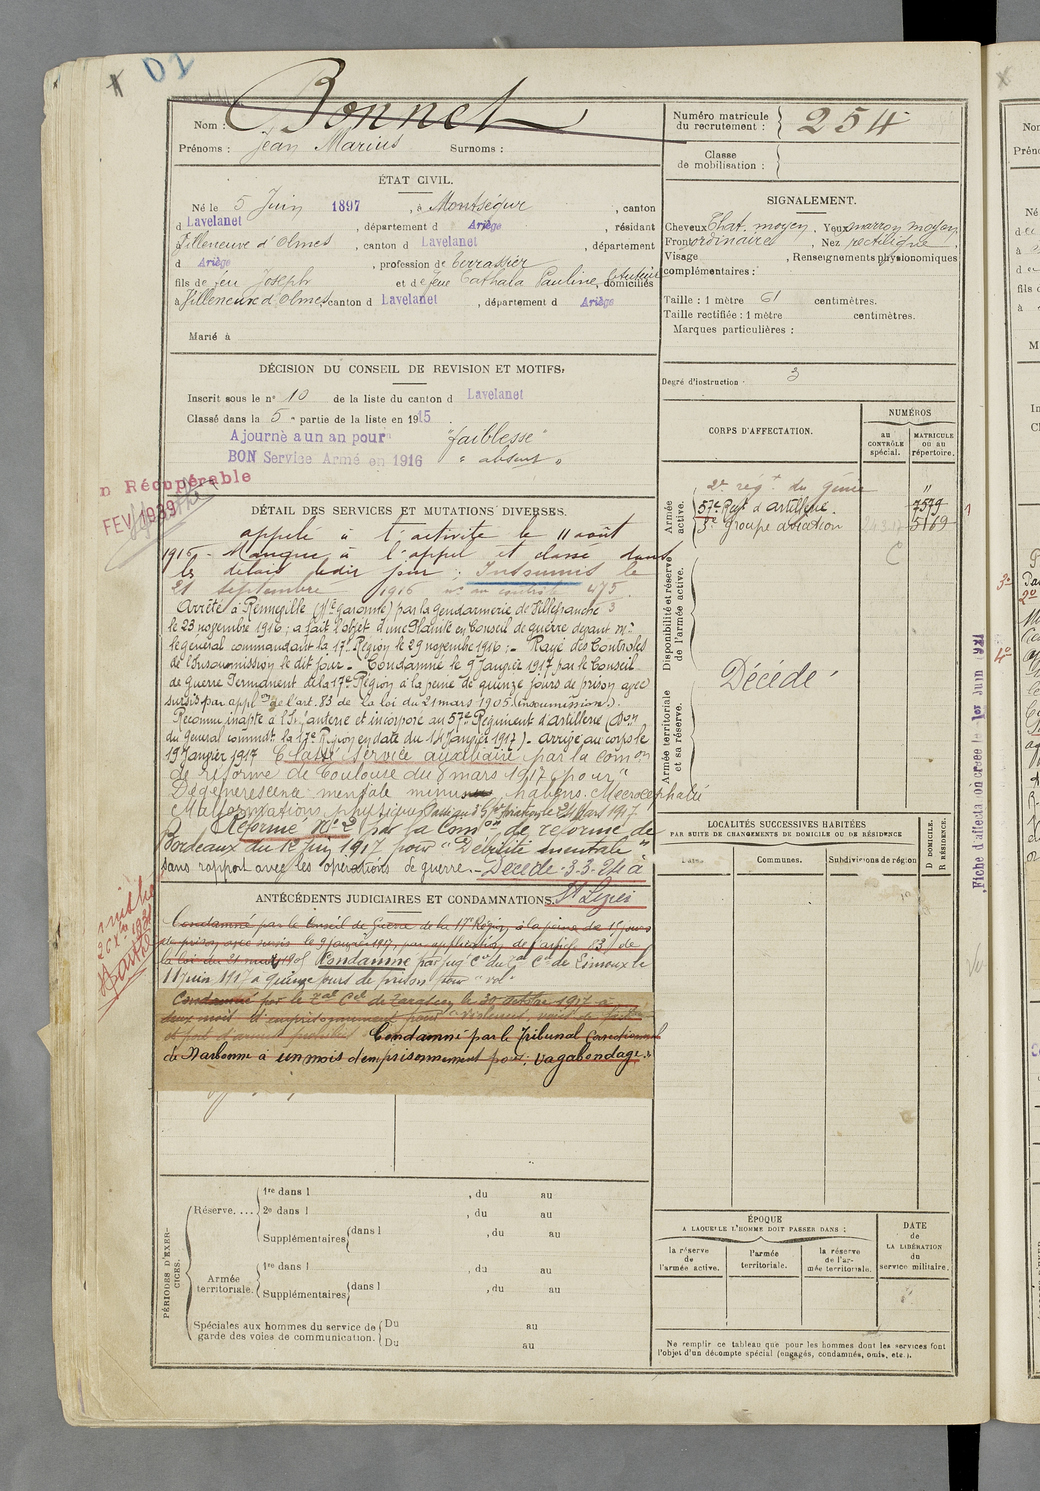 D1
Nom : Bonnet
Prénoms : Jean Marius Surnoms :
Numéro matricule du recrutement : 254
Classe de mobilisation :
ÉTAT CIVIL.
Né le 5 Juin 1897, à Montségur, canton
d Lavelanet, département d Ariège, résidant
Villeneuve d'Olmes, canton d Lavelanet, département
d Ariège, profession de terrassier
fils de feu Joseph et de feue Cathala Pauline, domiciliés
à Villeneuve d'Olmes canton d Lavelanet, département d Ariège
Marié à
SIGNALEMENT.
Cheveux Chat. moyen. Yeux marron moyen
Front ordinaire, Nez rectiligne.
Visage , Renseignements physionomiques
complémentaires :
Taille : 1 mètre 61 centimètres.
Taille rectifiée : 1 mètre centimètres.
Marques particulières :
Degré d'instruction : 3
DÉCISION DU CONSEIL DE REVISION ET MOTIFS.
Inscrit sous le n° 10 de la liste du canton d Lavelanet
Classé dans la 5e partie de la liste en 1915.
Ajourné a un an pour "faiblesse"
BON Service Armé en 1916 "absent"
n Récupérable
FEV 1939
CORPS D'AFFECTATION.
NUMÉROS
au CONTRÔLE spécial.
MATRICULE ou au répertoire.
Armée active.
2e régt du génie "
57e Regt d'artillerie. 7579
3e groupe aviation 5169
Disponibilité et réserve de l'armée active.
Décédé
Armée territoriale et sa réserve.
DÉTAIL DES SERVICES ET MUTATIONS DIVERSES.
appelé à l'activité le 11 août
1916 - Manque à l'appel et classé dans
les délais dudit jour : Insoumis le
21 septembre 1916 n° au contrôle 475.
Arrêté à Renneville (Hte Garonne) par la gendarmerie de Villefranche
le 23 novembre 1916 ; a fait l'objet d'une plainte en Conseil de guerre devant Mr
le général commandant la 17e Région le 29 novembre 1916 ; - Rayé des Controles
de l'Insoumission le dit jour - Condamné le 9 Janvier 1917 par le Conseil
de guerre Permanent de la 17e Région à la peine de quinze jours de prison avec
sursis par applon de l'art. 83 de la loi du 21 mars 1905 (insoumission).
Reconnu inapte à l'Infanterie et incorporé au 57e Régiment d'artillerie (Don
du Général commdt la 17e Région en date du 14 Janvier 1917) - arrivé au corps le
19 Janvier 1917 Classé service auxiliaire par la comon
de réforme de Toulouse du 8 mars 1917 pour "
Dégénérescence mentale minus habens. Microcéphalie
Malformations physiques Passé au 3e Gpe d'aviation le 24 Mars 1917.
Réformé N° 2 par la Comon de réforme de
Bordeaux du 12 Juin 1917 pour "Débilité mentale"
sans rapport avec les opérations de guerre. - Décédé 3.3.24 à
St Lizier
ANTÉCÉDENTS JUDICIAIRES ET CONDAMNATIONS.
Condamné par le Conseil de Guerre de la 17e Région à la peine de 15 jours
de prison avec sursis le 9 janvier 1917, par application de l'article 83 de
la loi du 21 mars 1905 Condamné par jugt Crel du Tal Cel de Limoux le
11 juin 1917 à quinze jours de prison pour "vol"
Condamné par le Tal Cel de Tarascon le 30 Octobre 1917 à
deux mois d'emprisonnement pour violences, voies de fait
et port d'armes prohibées Condamné par le Tribunal Correctionnel
de Narbonne à un mois d'emprisonnement pour : vagabondage.
LOCALITÉS SUCCESSIVES HABITÉES
PAR SUITE DE CHANGEMENTS DE DOMICILE OU DE RÉSIDENCE
Dates.
Communes.
Subdivisions de région
D DOMICILE.
R RÉSIDENCE.
Fiche d'affectation créée le 1er Juin 1921
PÉRIODES D'EXERCICES.
Réserve.... 1re dans l , du au
2e dans l , du au
Supplémentaires dans l , du au
Armée territoriale. 1re dans l , du au
Supplémentaires dans l , du au
Spéciales aux hommes du service de garde des voies de communication. Du au
Du au
ÉPOQUE
A LAQUELLE L'HOMME DOIT PASSER DANS :
la réserve de l'armée active.
l'armée territoriale.
la réserve de l'armée territoriale.
DATE de LA LIBÉRATION du service militaire.
Ne remplir ce tableau que pour les hommes dont les services font
l'objet d'un décompte spécial (engagés, condamnés, omis, etc.).